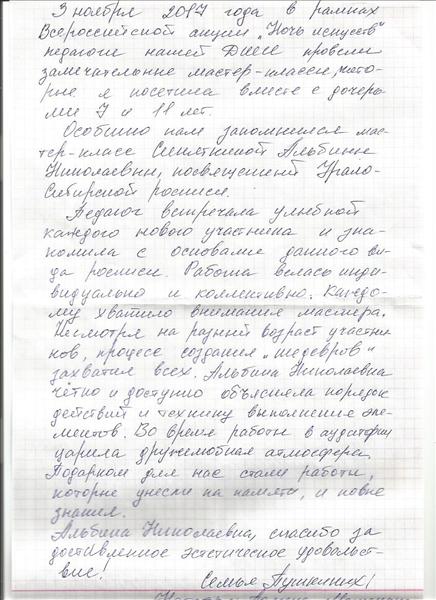 3 ноября 2017 года в рамках
Всероссийской акции „Ночь искусств"
педагоги нашей ДШИ провели
замечательные мастер-классы, кото-
рые я посетила вместе с дочерь-
ми 7 и 11 лет.
Особенно нам запомнился мас-
тер-класс Синяткиной Альбины
Николаевны, посвященный Урало-
Сибирской росписи.
Педагог встречала улыбкой
каждого нового участника и зна-
комила с основами данного ви-
да росписи. Работа велась инди-
видуально и коллективно. Каждо-
му хватило внимания мастера.
Несмотря на разный возраст участни
ков, процесс создания „шедевров"
захватил всех. Альбина Николаевна
чётко и доступно объясняла порядок
действий и технику выполнения эле-
ментов. Во время работы в аудитории
царила дружелюбная атмосфера.
Подарком для нас стали работы,
которые унесли на память, и новые
знания.
Альбина Николаевна, спасибо за
доставленное эстетическое удовольст-
вие!
Семья Пушкиных